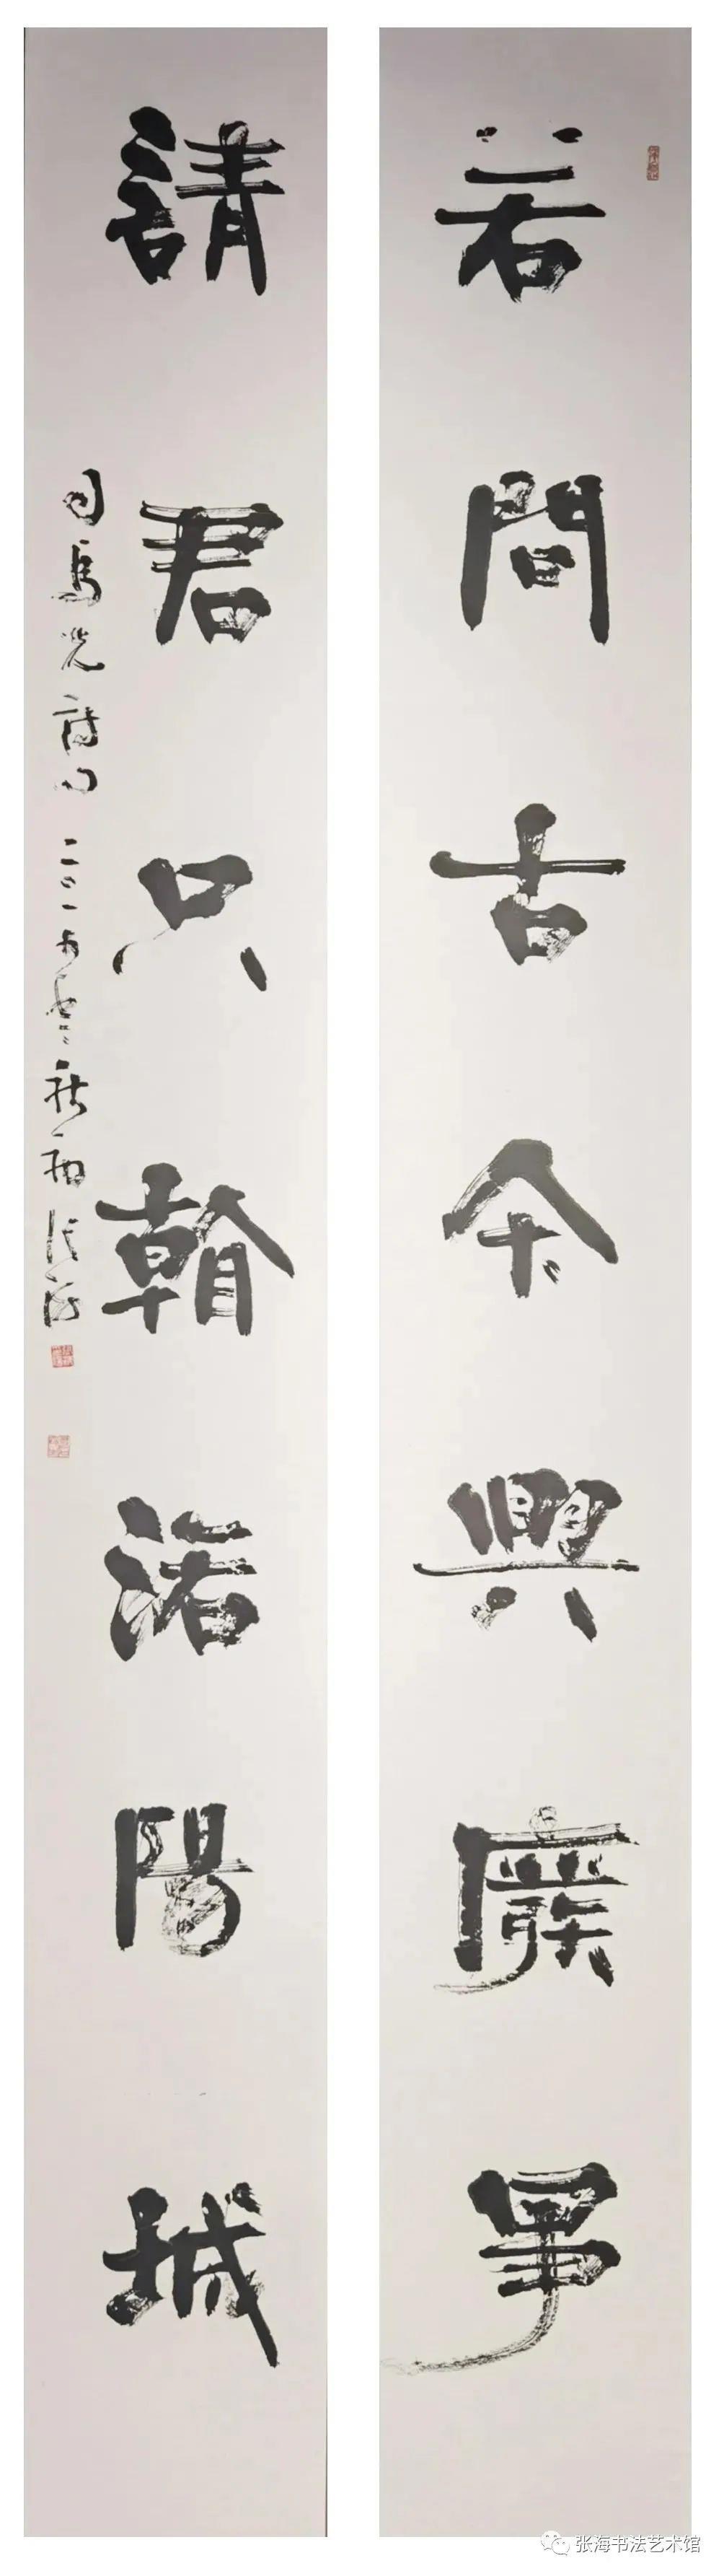 若問古今興廢事
請君只看洛陽城
司馬光詩句 二〇一 張海
张海书法艺术馆